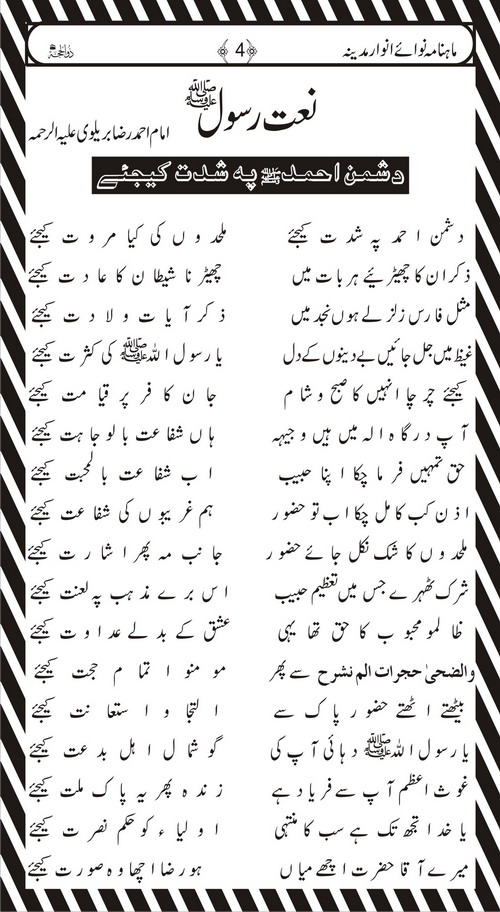 ماہنامہ نوائے انوار مدینہ ﴿4﴾ ذوالحجۃ
نعت رسول ﷺ
امام احمد رضا بریلوی علیہ الرحمہ
دشمن احمد ﷺ پہ شدت کیجئے
دشمن احمد پہ شدت کیجئے ملحدوں کی کیا مروت کیجئے
ذکر ان کا چھیڑئیے ہر بات میں چھیڑنا شیطان کا عادت کیجئے
مثل فارس زلزلے ہوں نجد میں ذکر آیات ولادت کیجئے
غیظ میں جل جائیں بے دینوں کے دل یا رسول اللہ ﷺ کی کثرت کیجئے
کیجئے چرچا انہیں کا صبح و شام جان کافر پر قیامت کیجئے
آپ درگاہ الہ میں ہیں وجیہہ ہاں شفاعت بالوجاہت کیجئے
حق تمہیں فرما چکا اپنا حبیب اب شفاعت بالمحبت کیجئے
اذن کب کا مل چکا اب تو حضور ہم غریبوں کی شفاعت کیجئے
ملحدوں کا شک نکل جائے حضور جانب مہ پھر اشارت کیجئے
شرک ٹھہرے جس میں تعظیم حبیب اس برے مذہب پہ لعنت کیجئے
ظالمو محبوب کا حق تھا یہی عشق کے بدلے عداوت کیجئے
والضحیٰ حجرات الم نشرح سے پھر مومنو اتمام حجت کیجئے
بیٹھتے اٹھتے حضور پاک سے التجا و استعانت کیجئے
یا رسول اللہ ﷺ دہائی آپ کی گوشمال اہل بدعت کیجئے
غوث اعظم آپ سے فریاد ہے زندہ پھر یہ پاک ملت کیجئے
یا خدا تجھ تک ہے سب کا منتہی اولیاء کو حکم نصرت کیجئے
میرے آقا حضرت اچھے میاں ہو رضا اچھا وہ صورت کیجئے